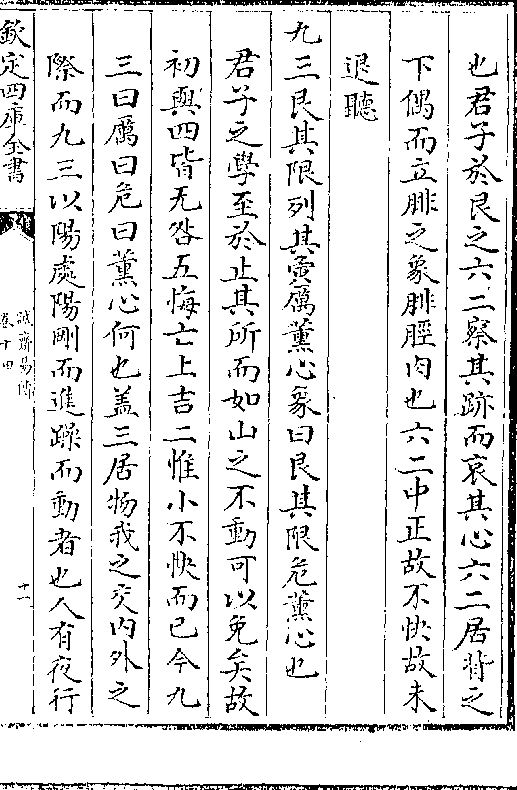 也君子於艮之六二察其跡而哀其心六二居背之
下偶而立腓之象腓脛肉也六二中正故不快故未
退聽
九三艮其限列其夤厲薰心象曰艮其限危薰心也
君子之學至於止其所而如山之不動可以免矣故
初與四皆无咎五悔亡上吉二惟小不快而已今九
三曰厲曰危曰薰心何也盖三居物我之交内外之
際而九三以陽處陽剛而進躁而動者也人有夜行
欽定四庫全書
誠齋易傳
卷十四
十一